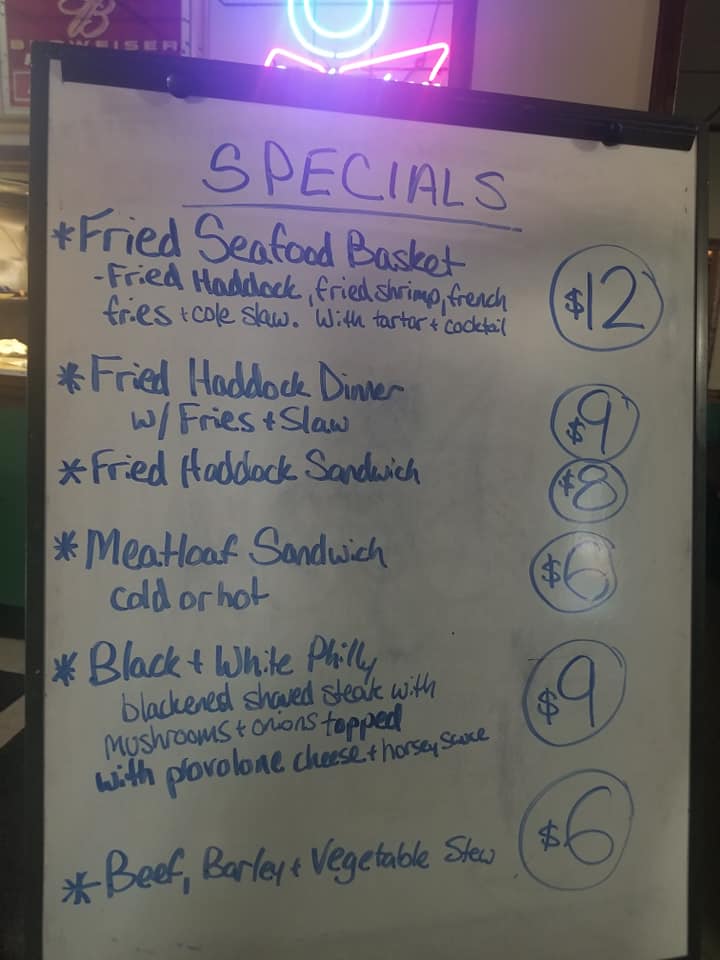 BUDWEISER
SPECIALS
*Fried Seafood Basket
-Fried Haddock, fried shrimp, french
fries + cole slaw. With tartar + cocktail
$12
*Fried Haddock Dinner
w/ Fries + Slaw
$9
*Fried Haddock Sandwich
$8
*Meatloaf Sandwich
cold or hot
$6
*Black + White Philly
blackened shaved steak with
mushrooms + onions topped
with provolone cheese + horsey sauce
$9
*Beef, Barley + Vegetable Stew
$6